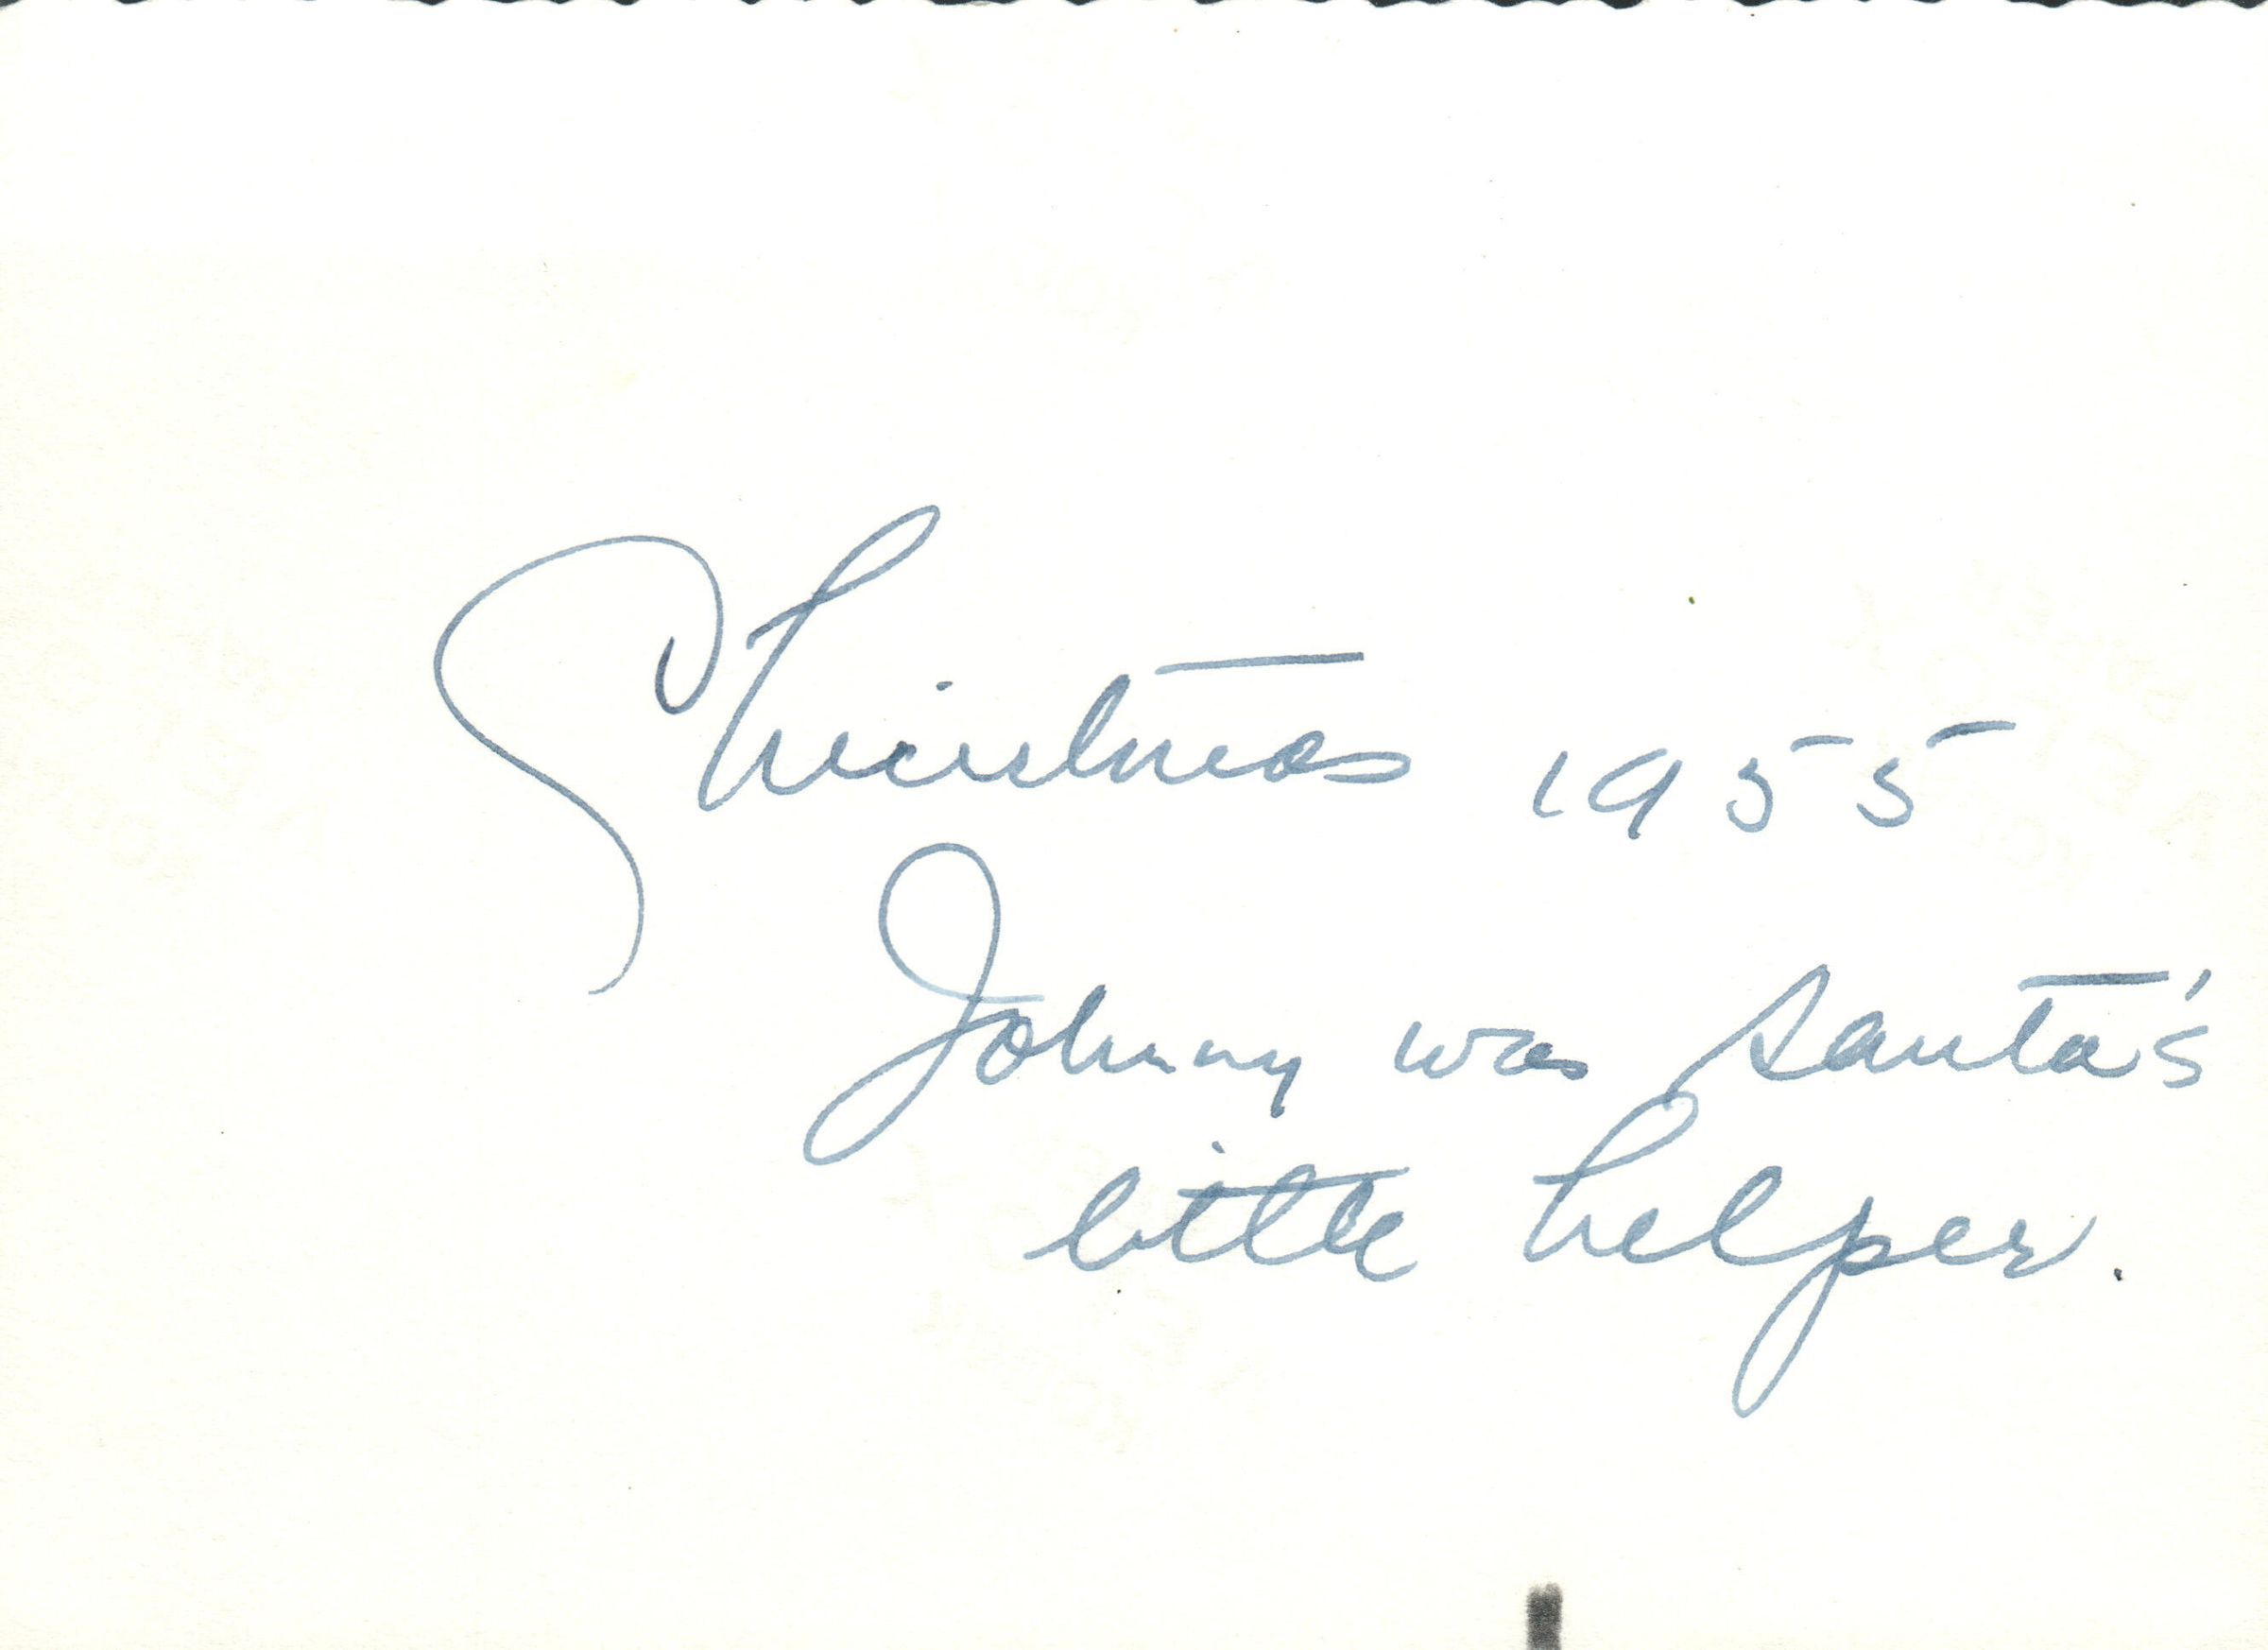 Christmas 1955
Johnny was Santa's
little helper.